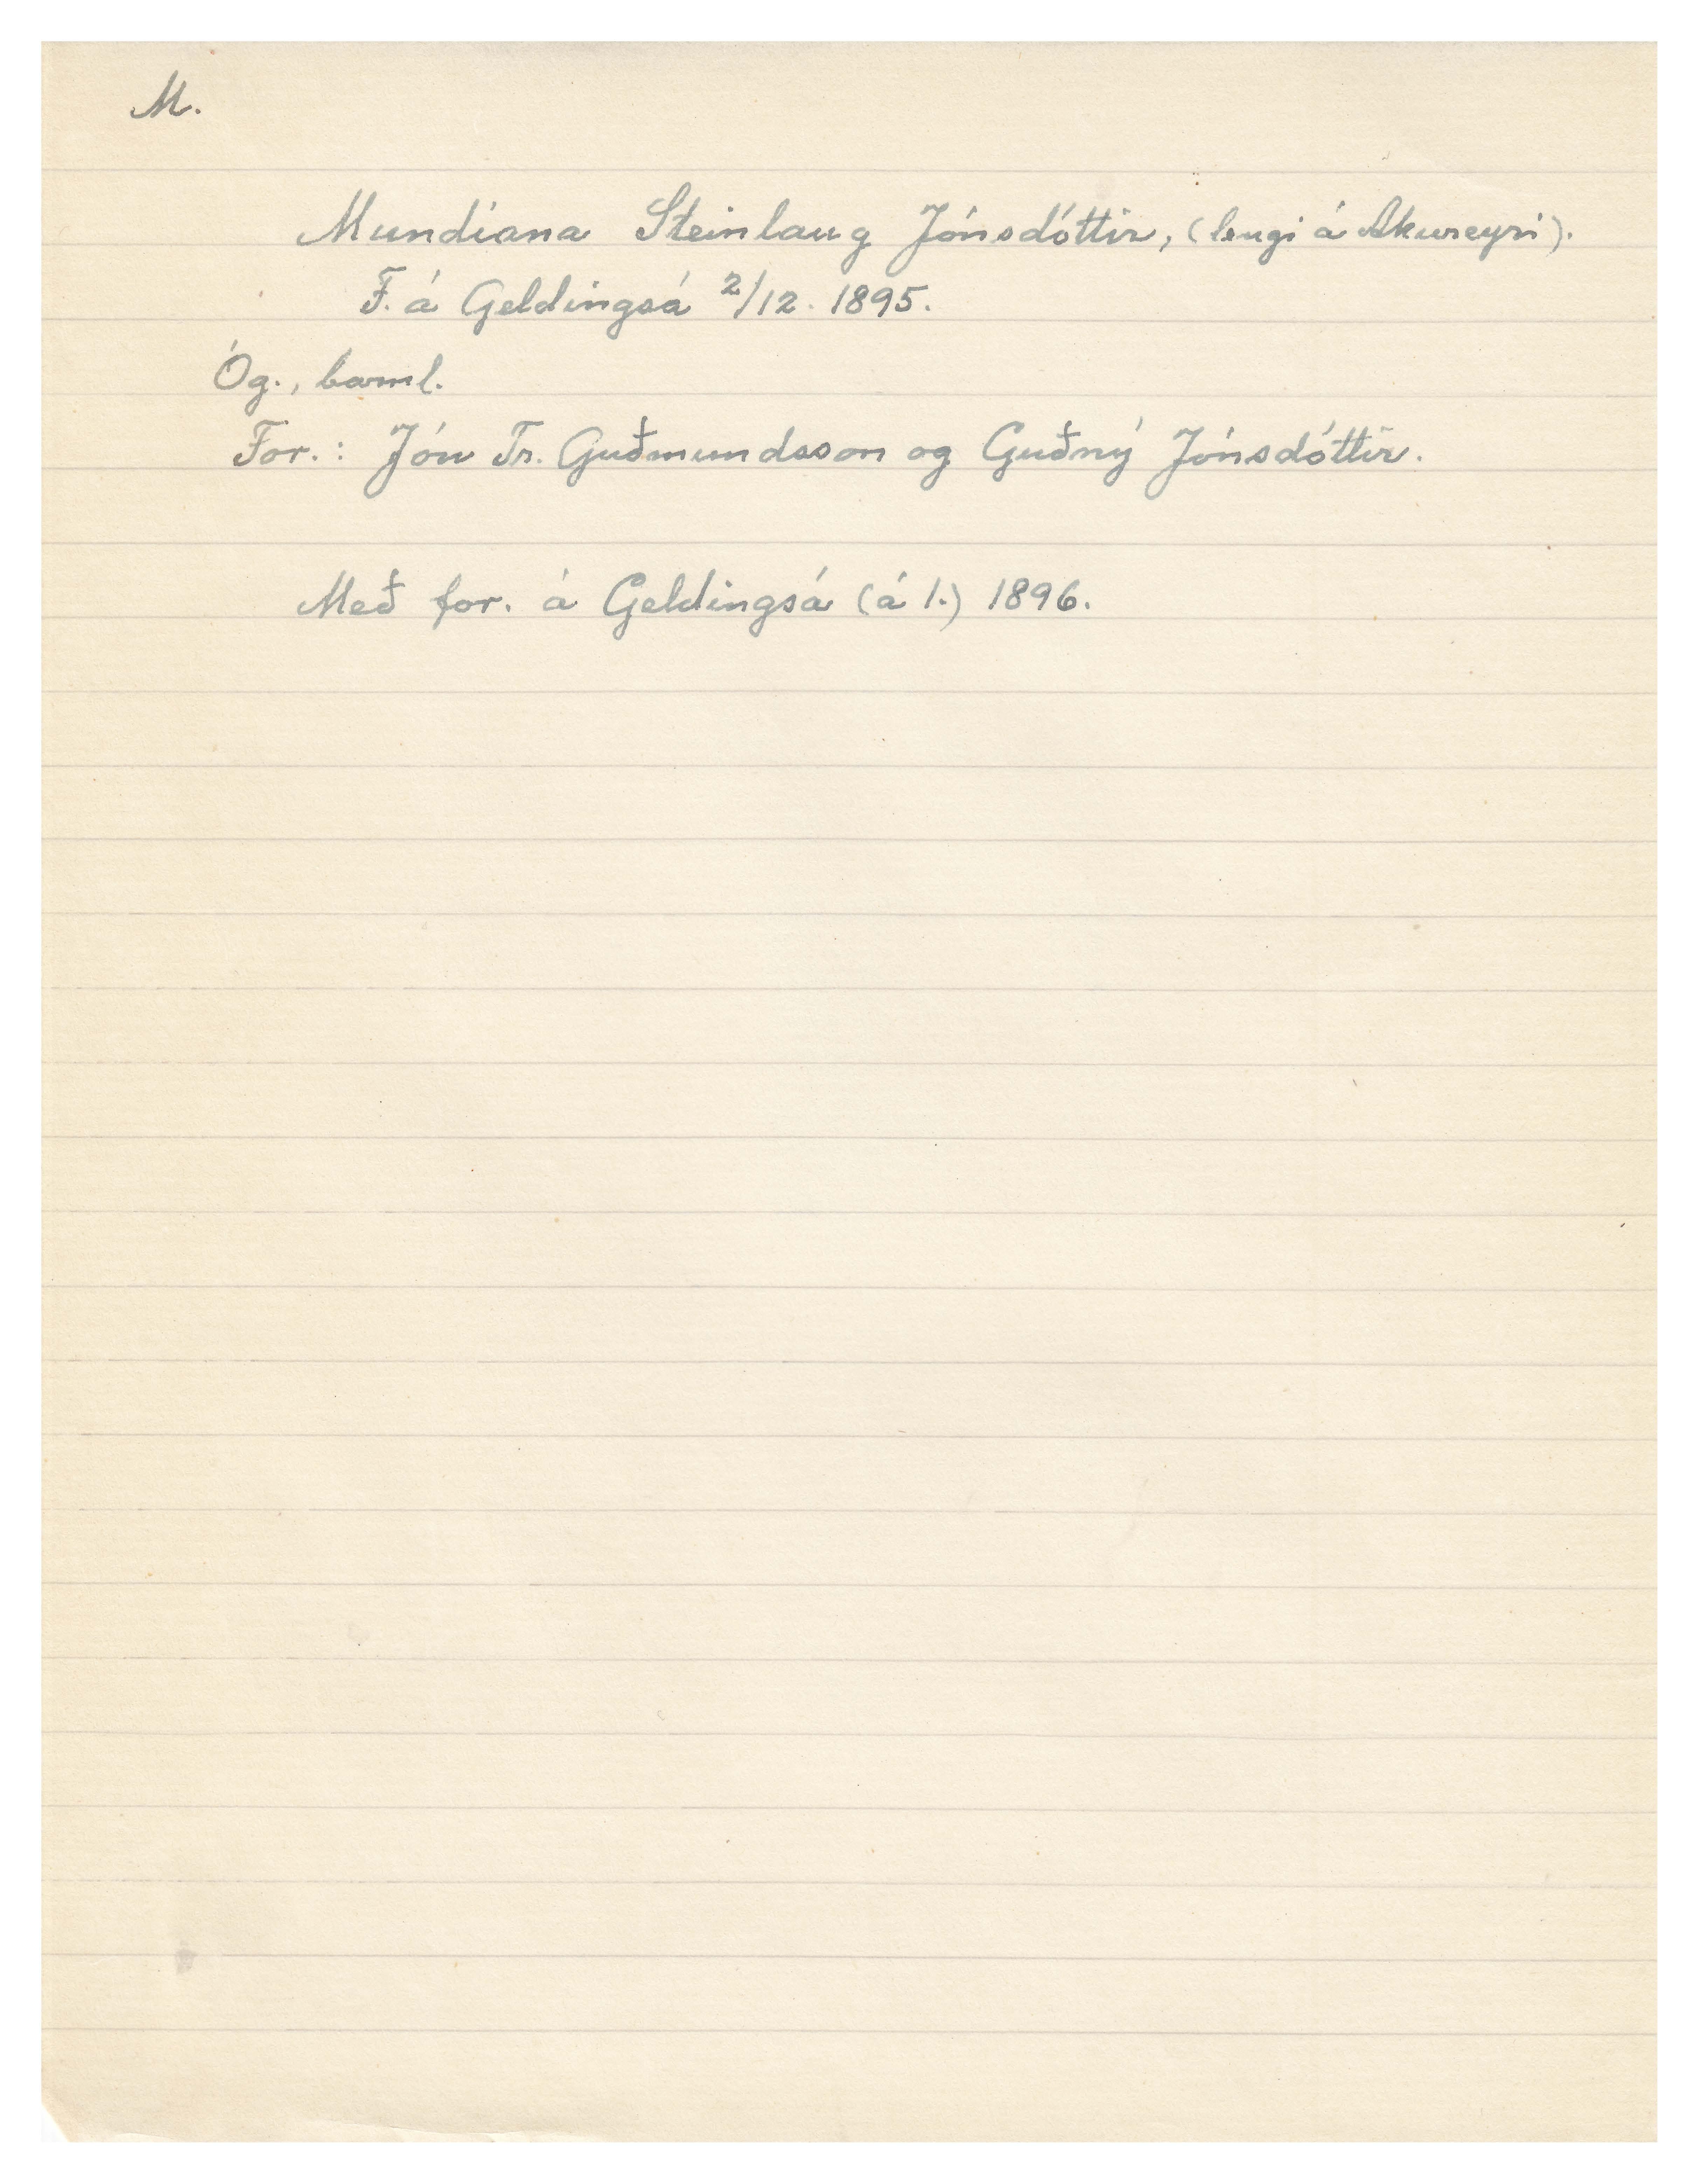 M.
Mundíana Steinlaug Jónsdóttir, (lengi á Akureyri).
F. á Geldingsá 2/12. 1895.
Óg., barnl.
For.: Jón Tr. Guðmundsson og Guðný Jónsdóttir.
Með for. á Geldingsá (á 1.) 1896.